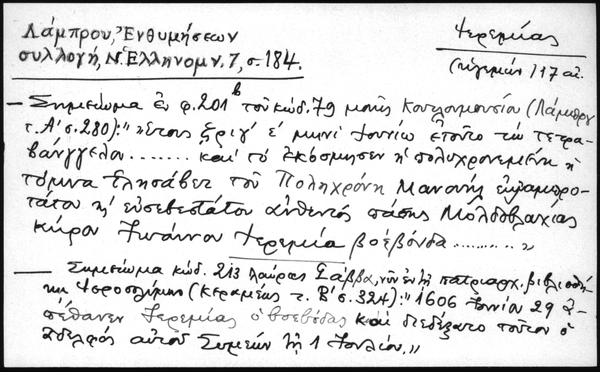 Λάμπρου, Ἐνθυμήσεων
συλλογή, Ν. Ἑλληνομν. 7, σ. 184.
Ἱερεμίας
(ἡγεμών) 17 αἰ.
— Σημείωμα ἐν φ. 201 b τοῦ κώδ. 79 μονῆς Κουτλουμουσίου (Λάμπρου
τ. Α' σ. 280): "ἔτους ζριγ' ε' μηνὶ Ἰουνίῳ ἐτοῦτο τὼ τετρα-
βάγγελον ........ καὶ τὸ ἐκόσμησεν ἡ πολυχρονεμένη ἡ
τόμνα Ἐλησάβετ τοῦ Πολυχρόνη
τάτου κ' εὐσεβεστάτου ἀθεντὸς πάσης Μολδοβλαχίας
κύρου Ἰωάννου Ἱερεμία βοεβόνδα .......... "
— Σημείωμα κώδ. 213 Λαύρας Σάββα, νῦν ἐν τῇ πατριαρχ. βιβλιοθή-
κῃ Ἱεροσολύμων (Κεραμέως τ. Β' σ. 324): "1606 Ἰουνίου 29 ἀ-
πέθανεν Ἱερεμίας ὁ βοεβόδας καὶ διεδέξατο τοῦτον ὁ
ἀδελφὸς αὐτοῦ Συμεὼν τῇ 1 Ἰουλίου."